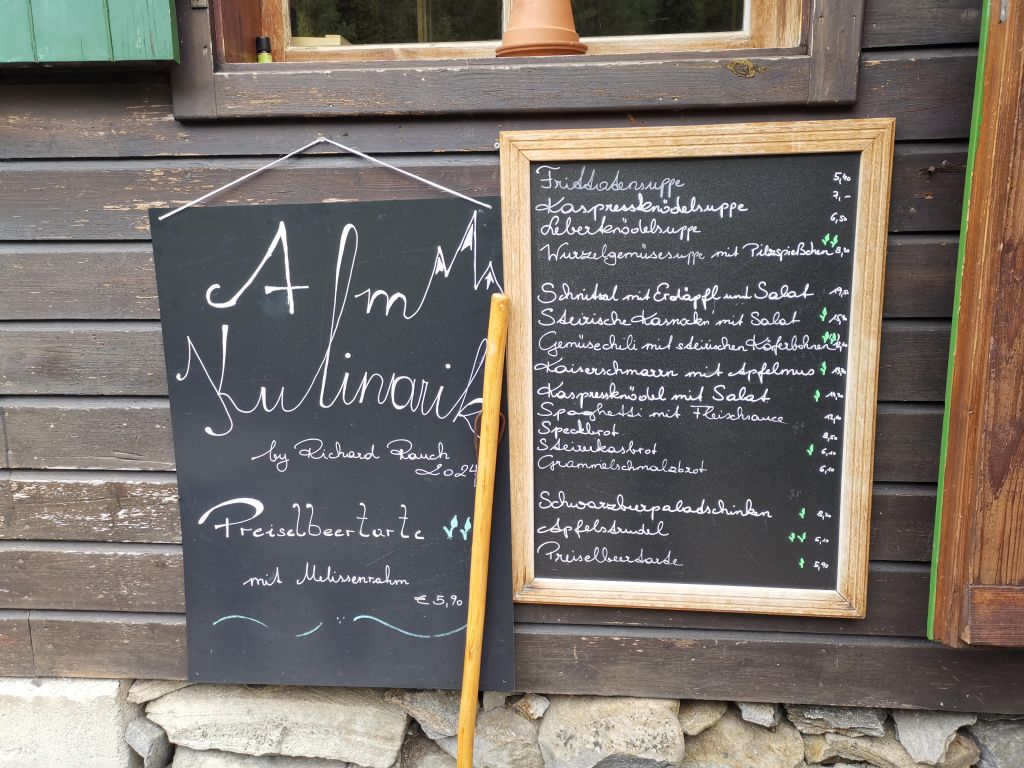 Alm
Kulinarik
by Richard Rauch
2024
Preiselbeertarte
mit Melissenrahm
€ 5,90
Frittatensuppe 5,40
Kaspressknödelsuppe 7,-
Leberknödelsuppe 6,50
Wurzelgemüsesuppe mit Pilzspießchen 8,90
Schnitzal mit Erdäpfl und Salat
Steirische Kasnockn mit Salat
Gemüsechili mit steirischen Käferbohnen
Kaiserschmarrn mit Apfelmus
Kaspressknödel mit Salat
Spaghetti mit Fleischsauce
Speckbrot 8,50
Steirerkasbrot 6,10
Grammelschmalzbrot 6,10
Schwarzbeerpaladschinken
Apfelstrudel 6,10
Preiselbeertarte 5,90